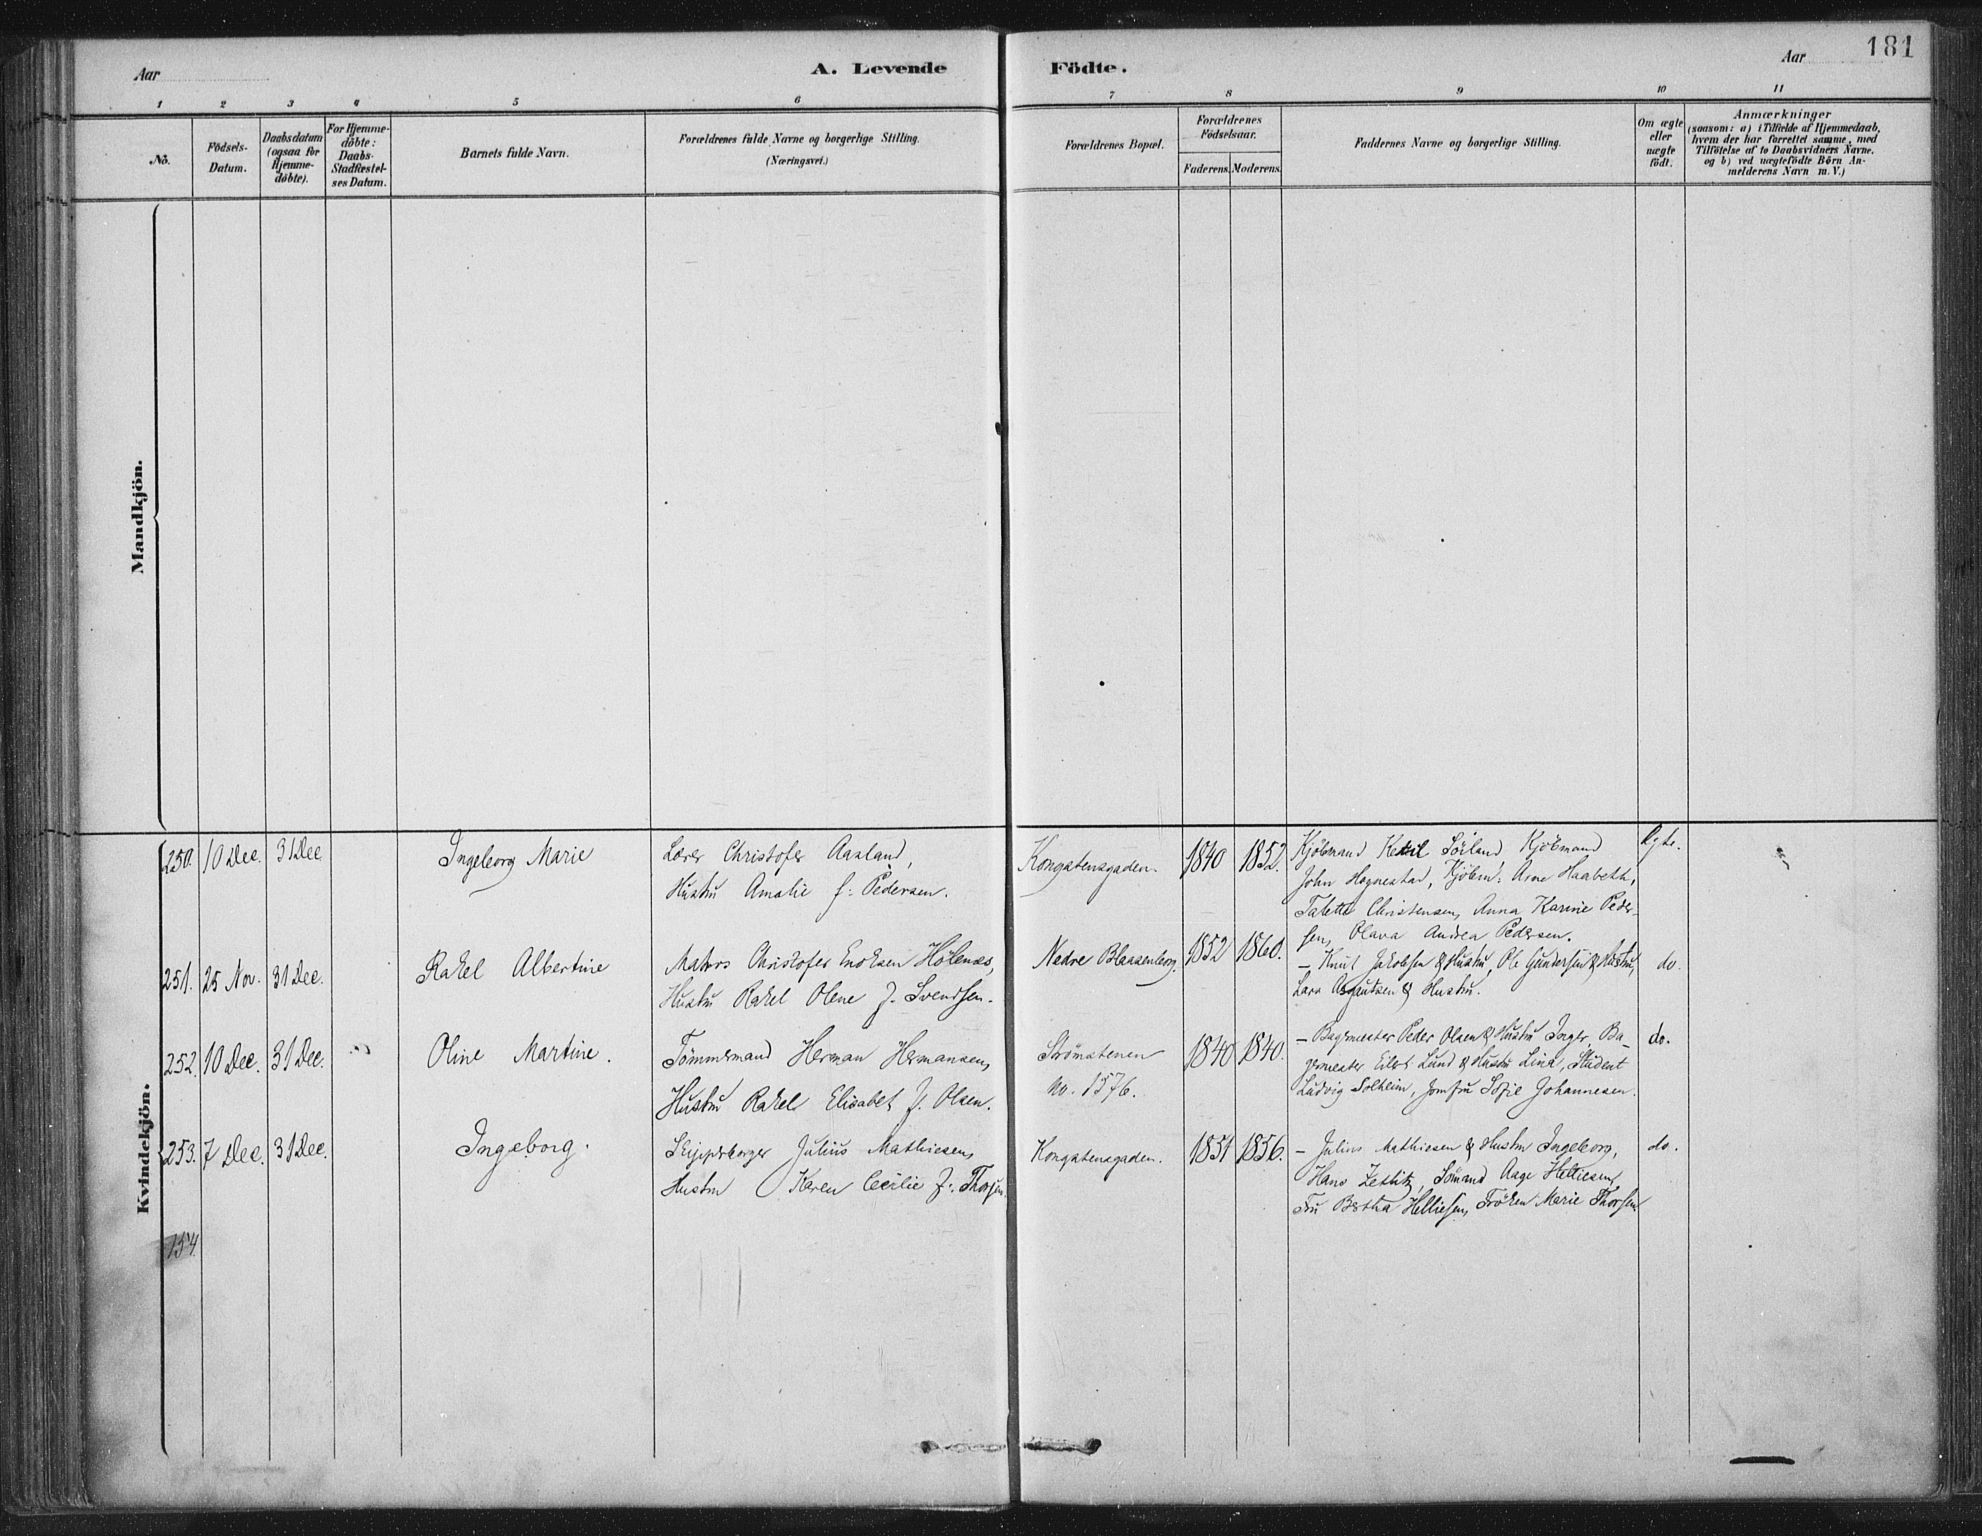 181
Aar
A. Levende Födte.
Aar
1 2 3 4 5 6 7 8 9 10 11
No.
Födsels-
Datum.
Daabsdatum
(ogsaa for
Hjemme-
döbte).
For Hjemme-
döbte:
Daabs-
Stadfæstel-
ses Datum.
Barnets fulde Navn.
Forældrenes fulde Navne og borgerlige Stilling.
(Næringsvei.)
Forældrenes Bopæl.
Forældrenes
Födselsaar.
Faderens. Moderens.
Faddernes Navne og borgerlige Stilling.
Om ægte
eller
uægte
födt.
Anmærkninger
(saasom: a) i Tilfælde af Hjemmedaab,
hvem der har forrettet samme, med
Tilföielse af to Daabsvidners Navne.
og b) ved uægtefödte Börn An-
melderens Navn m. V.)
Mandkjön.
Kvindekjön.
250. 10 Dec. 31 Dec. Ingeborg Marie
Lærer Christofer Aasland,
Hustru Amalie f. Pedersen.
Kongstensgaden. 1840 1852.
Kjöbmand Ketil Söiland, Kjöbmand
John Hognestad, Kjöbm: Arne Haabeth,
Talette Christensen, Anna Karine Peder-
sen, Olava Andrea Pedersen.
Ægte.
251. 25 Nov. 31 Dec. Rakel Albertine
Matros Christofer Enoksen Holenæs,
Hustru Rakel Olene f. Svendsen.
Nedre Blaasenborg. 1852 1860.
– Knut Jakobsen & Hustru, Ole Gundersen & Hustru,
Lars Asgautsen & Hustru.
do.
252. 10 Dec. 31 Dec. Oline Martine.
Tömmermand Herman Hermansen,
Hustru Rakel Elisabet f. Olsen.
Strömstenen
No. 1576.
1840 1840.
– Bagermester Peder Olsen & Hustru Inger, Ba-
germester Eilert Lund & Hustru Lina, Student
Ludvig Solheim, Jomfru Sofie Johannesen.
do.
253. 7 Dec. 31 Dec. Ingeborg.
Skipsborger Julius Mathiesen,
Hustru Karen Cecilie f. Thorsen.
Kongstensgaden. 1851 1856.
– Julius Mathiesen & Hustru Ingeborg,
Hans Zetlitz, Sömand Aage Helliesen,
Fru Bertha Helliesen, Fröken Marie Thorsen
do.
154.